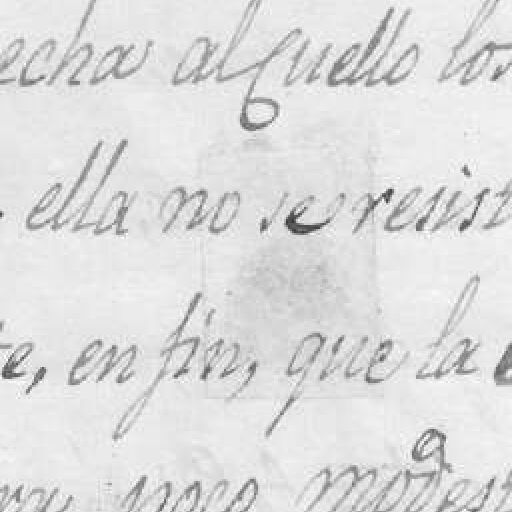 echa al Cuello los
ella no se resist
te, en fin, que la
poco modest